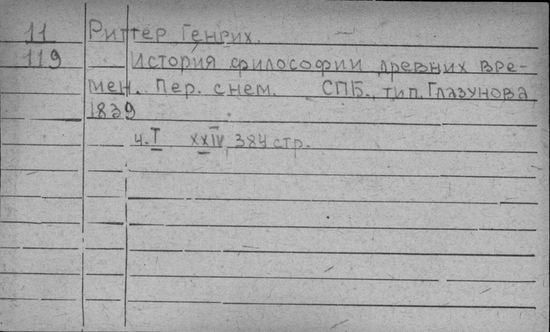 11 Риттер Генрих.
119 История философии древних вре-
мен. Пер. с нем. СПБ., тип. Глазунова,
1839
ч. I XXIV, 384 стр.